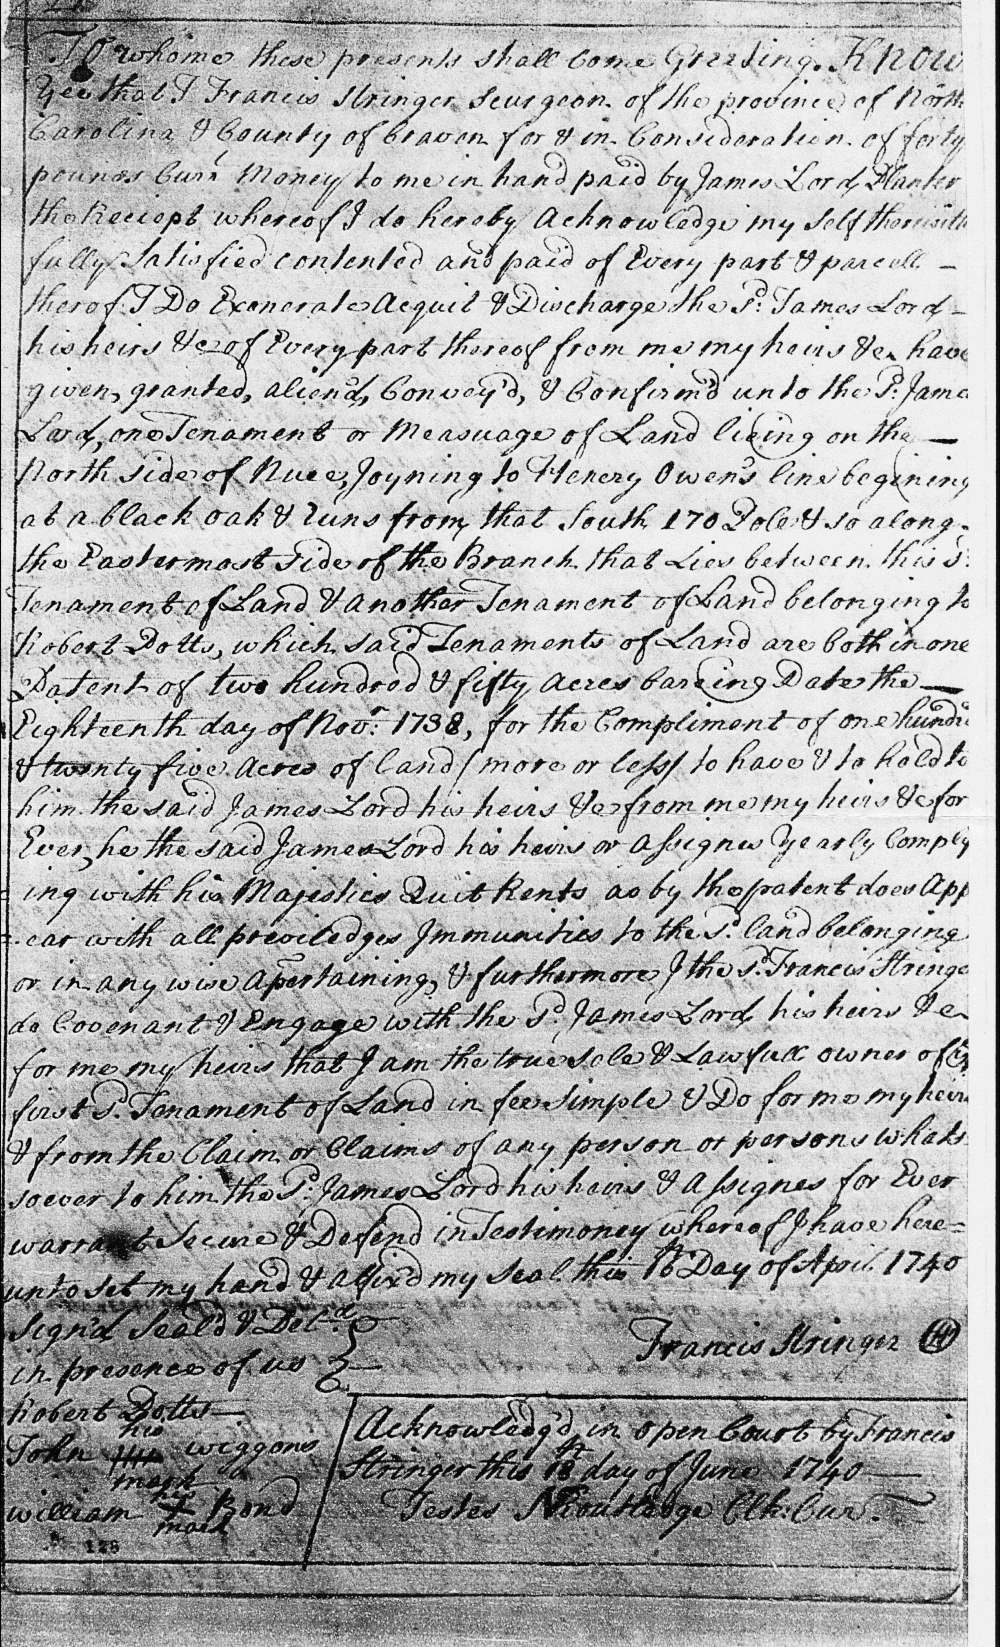 To whome these presents shall Come Greeting. Know
Yee that I Francis Stringer Scurgeon of the province of North
Carolina & County of Craven for & in Consideration of forty
pounds Curr.t Money to me in hand paid by James Lord, Planter
the Reciept whereof I do hereby Acknowledge my Self therewith
fully Satisfied contented and paid of Every part & parcell —
therof: I Do Exonerate Acquit & Discharge the S.d: James Lord —
his heirs &c of Every part thereof from me my heirs &c have
given, granted, aliend, Convey'd, & Confirm'd unto the S.d: James
Lord, one Tenament or Measuage of Land lieing on the —
North side of Nuce, Joyning to Henery Owen's line begining
at a black oak & Runs from that South 170 Pole & so along
the Eastermost side of the Branch that Lies between this S.d:
Tenament of Land & another Tenament of Land belonging to
Robert Dotts, which said Tenaments of Land are both in one
Patent of two hundred & fifty Acres bareing Date the —
Eighteenth day of Nov.r: 1738, for the Compliment of one hundred
& twenty five Acres of land / more or less / to have & to hold to
him the said James Lord his heirs &c from me my heirs &c for
Ever, he the said James Lord his heirs or assignes Yearly Comply
ing with his Majesties Quit Rents as by the patent does App
= ear with all previledges Immunities to the S.d land belonging
or in any wise apertaining, & furthermore I the s.d Francis Stringer
do Covenant & Engage with the S.d: James Lord, his heirs &c
for me my heirs that I am the true sole & Lawfull owner of
first S.d. Tenament of Land in fee simple & Do for me my heirs
& from the Claim or Claims of any person or persons whats
soever to him the S.d: James Lord his heirs & assignes for Ever
warrant Secure & Defend in Testimoney whereof I have here=
unto set my hand & affix'd my seal this 16th Day of April 1740
Sign'd Seal'd & Del.d
in presence of us
Francis Stringer
Robert Dotts —
John his mark Wiggons
William mark Bond
Acknowledg'd in open Court by Francis
Stringer this 18th day of June 1740 —
Testes N Routledge Clk: Cur.
128